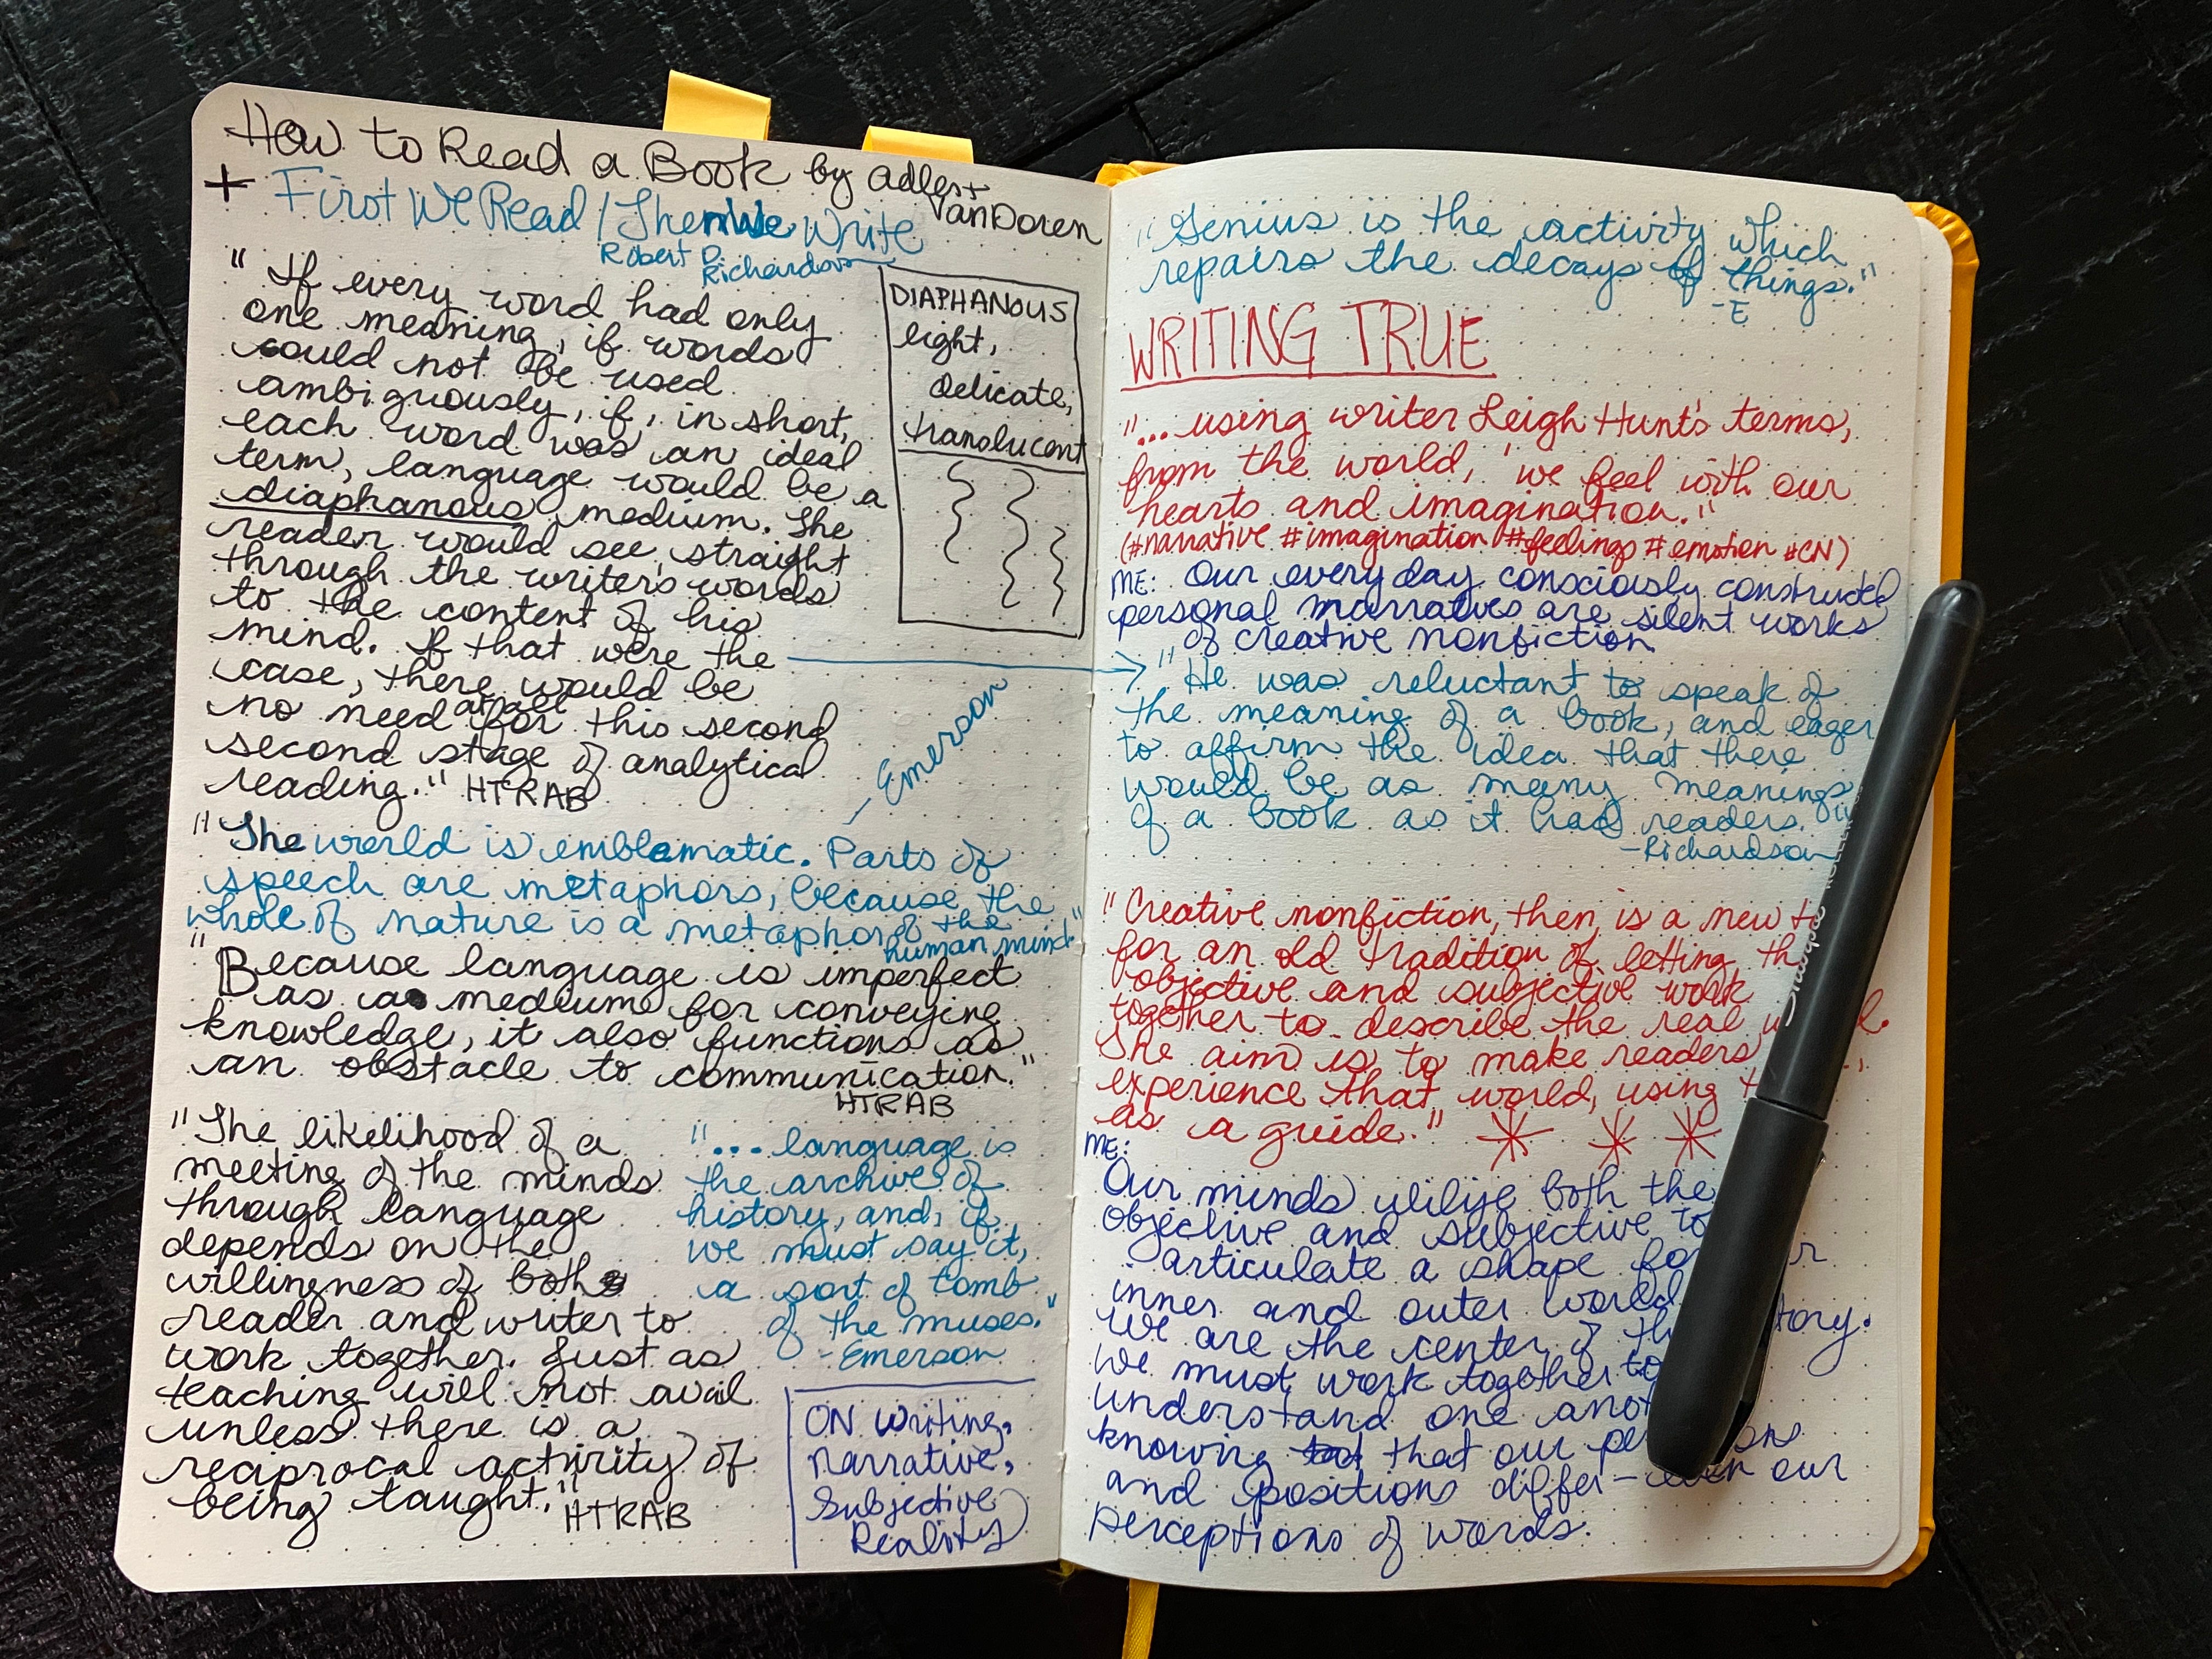 How to Read a Book by Adler +
Van Doren
+ First We Read / Then We Write
Robert D.
Richardson
"If every word had only
one meaning, if words
could not be used
ambiguously, if, in short,
each word was an ideal
term, language would be a
diaphanous medium. The
reader would see straight
through the writer's words
to the content of his
mind. If that were the
case, there would be
no need at all for this second
second stage of analytical
reading." HTRAB
DIAPHANOUS
light,
delicate,
translucent
- Emerson
"The world is emblematic. Parts of
speech are metaphors, because the
whole of nature is a metaphor of the
human mind."
"Because language is imperfect
as a medium for conveying
knowledge, it also functions as
an obstacle to communication."
HTRAB
"The likelihood of a
meeting of the minds
through language
depends on the
willingness of both
reader and writer to
work together. Just as
teaching will not avail
unless there is a
reciprocal activity of
being taught." HTRAB
"... language is
the archive of
history, and, if
we must say it,
a sort of tomb
of the muses."
- Emerson
ON Writing,
Narrative,
Subjective
Reality
"Genius is the activity which
repairs the decays of things."
-E
WRITING TRUE
"... using writer Leigh Hunt's terms,
from the world, 'we feel with our
hearts and imagination."
(#narrative #imagination #feelings #emotion #CN)
ME: Our everyday consciously constructed
personal narratives are silent works
of creative nonfiction
"He was reluctant to speak of
the meaning of a book, and eager
to affirm the idea that there
would be as many meanings
of a book as it had readers."
-Richardson
"Creative nonfiction, then, is a new
for an old tradition of letting
objective and subjective work
together to describe the real
The aim is to make readers
experience that world, using
as a guide."
ME:
Our minds utilize both the
objective and subjective to
articulate a shape
inner and outer world
We are the center of
We must work together to
understand one
knowing that our
and positions differ - even our
perceptions of words.
Sharpie